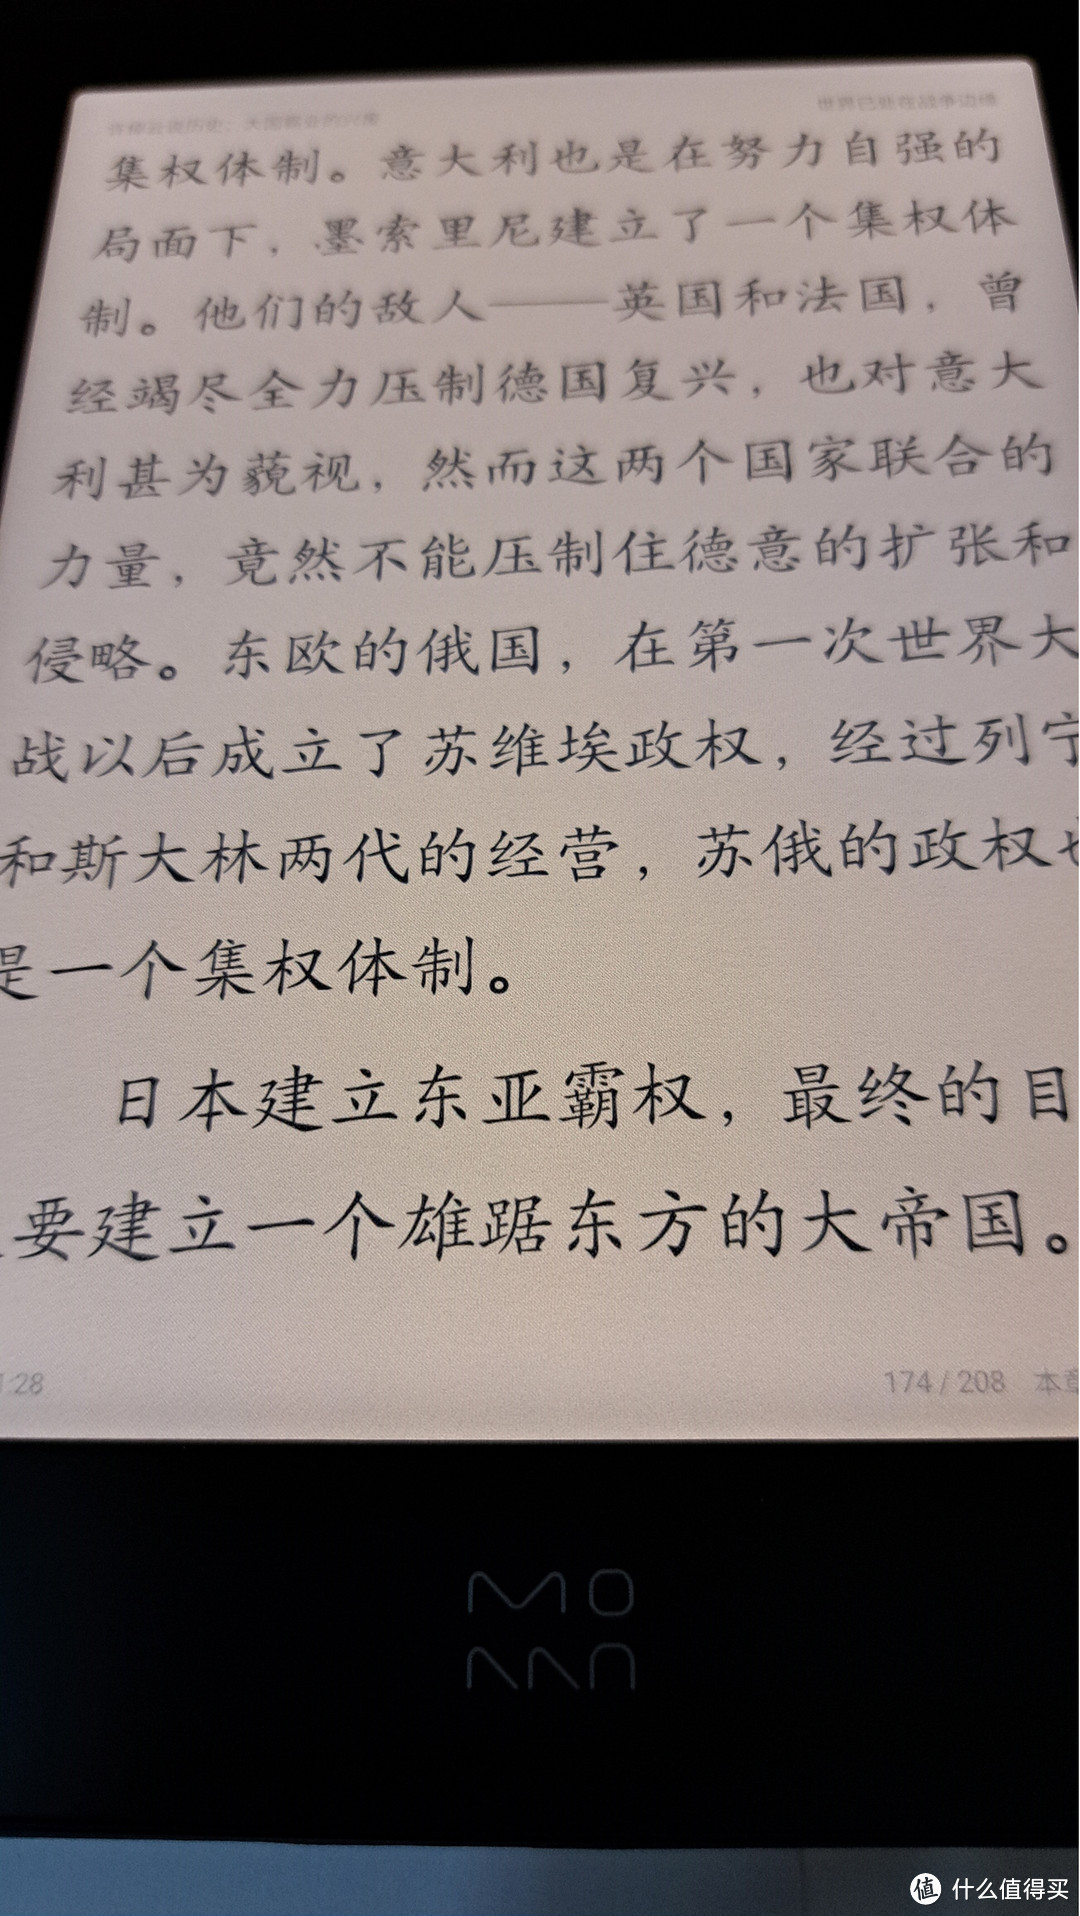 许倬云说历史：大国霸业的兴废
世界已处在战争边缘
集权体制。意大利也是在努力自强的
局面下，墨索里尼建立了一个集权体
制。他们的敌人——英国和法国，曾
经竭尽全力压制德国复兴，也对意大
利甚为藐视，然而这两个国家联合的
力量，竟然不能压制住德意的扩张和
侵略。东欧的俄国，在第一次世界大
战以后成立了苏维埃政权，经过列宁
和斯大林两代的经营，苏俄的政权也
是一个集权体制。
日本建立东亚霸权，最终的目
要建立一个雄踞东方的大帝国。
1:28
174 / 208 本章
MOAAN
值 什么值得买